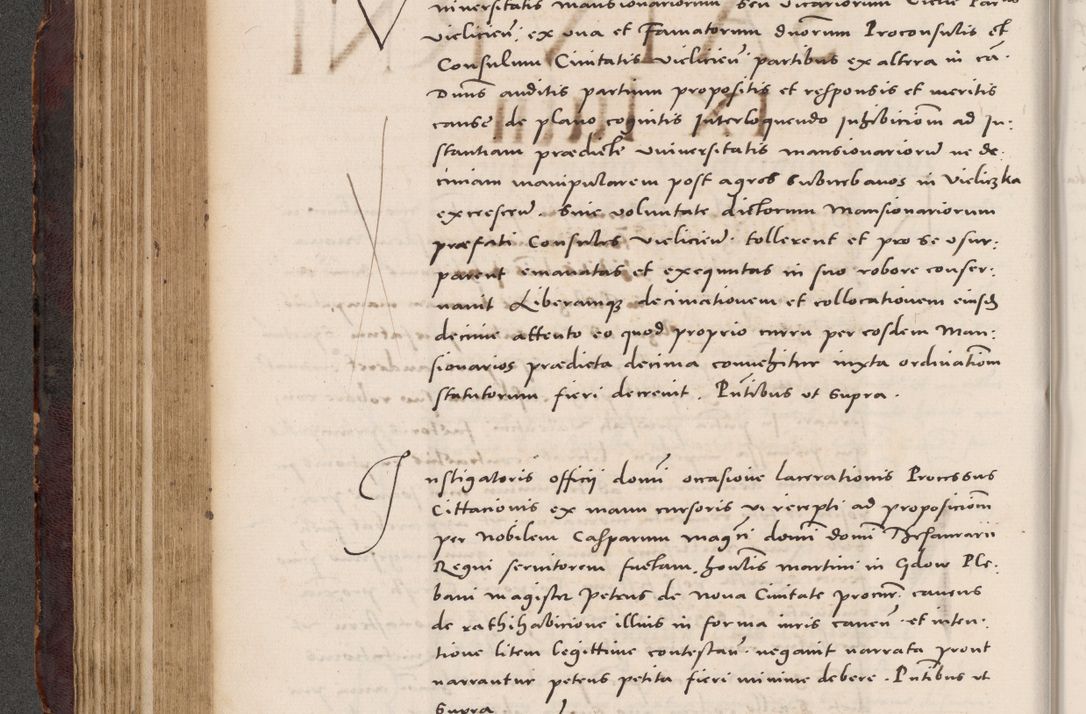 niversitatis mansionariorum seu vicariorum
vielicien̄. ex vna et Famatorum dnorum Proconsulis et
Consulum Civitatis vielicien̄ partibus ex altera in cā.
Dnūs auditis partium propositis et responsis et meritis
cause de plano cognitis Interloquendo Inhibiciom̄ ad In:
stantiam prædicte vniversitatis mansionariorū ne de.
cimam manipularem post agros suburbanos in vieliczka
excrescen̄. Sine voluntate dictorum Mansionariorum
præfati Consules vielicien̄. tollerent et pro se vsur:
parent emanatas et exequutas in suo robore conser:
nauit Liberamq₃ decimationem et collocationem eiusd
decime attento eo quod proprio curru per eosdem Man:
sionarios prædicta decima convehitur iuxta ordinatiom̄
statutorum fieri decrevit. Pn̄tibus vt supra.
Instigatoris officij domi̅ occasione lacerationis Processus
Cittacionis ex manu cursoris vi recepti ad proposiciom̄
per Nobilem Casparum magr̄i domi̅ domi̅ Thesaurarii
Regni servitorem factam. hon̄lis martini in Gdow Ple:
bani magister Petrus de Nova Civitate procur̄. cavens
de rathihabicione illius in forma iuris caven̄. et inten:
tione litem legittime contestan̄. negavit narrata prout
narrantur petens petita fieri minime debere. Pn̄tibus vt
supra